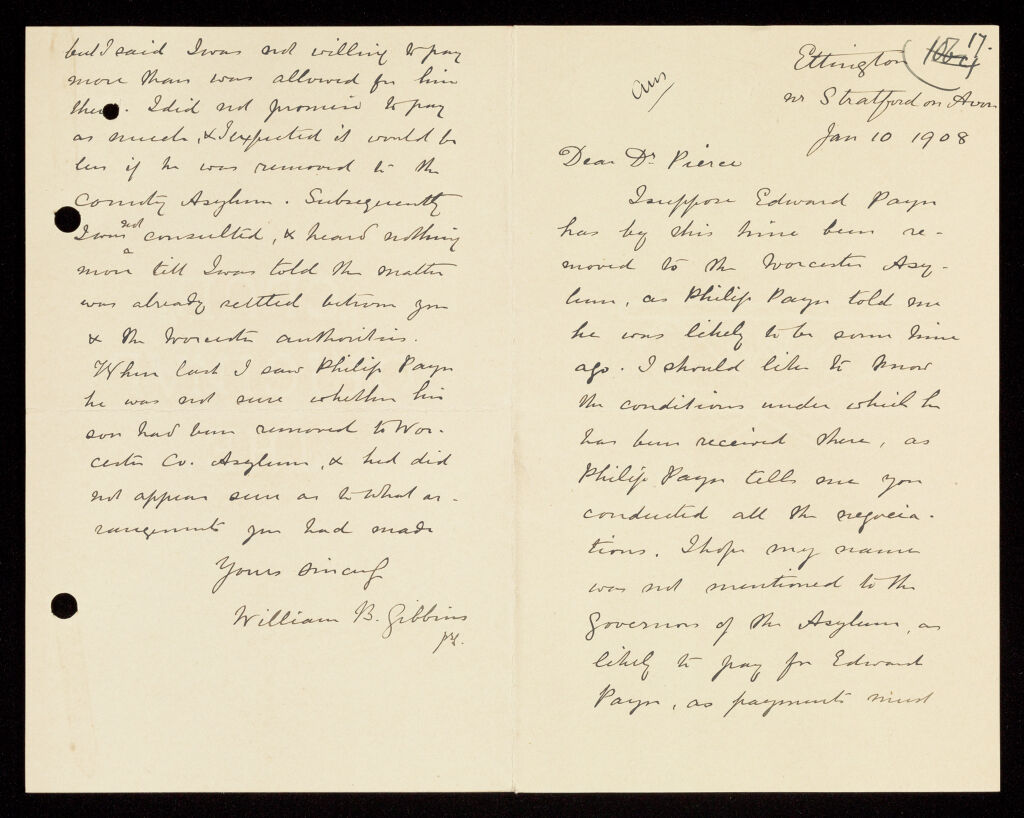 Ettington
nr Stratford on Avon
Jan 10 1908
17.
Ans
Dear Dr. Pierce
I suppose Edward Payn
has by this time been re-
moved to the Worcester Asy-
lum, as Philip Payn told me
he was likely to be some time
ago. I should like to know
the conditions under which he
has been received there, as
Philip Payn tells me you
conducted all the negocia-
tions. I hope my name
was not mentioned to the
Governors of the Asylum, as
likely to pay for Edward
Payn, as payments must
but I said I was not willing to pay
more than was allowed for him
. I did not promise to pay
as much, & I expected it would be
less if he was removed to the
County Asylum. Subsequently
I was not consulted, & heard nothing
more till I was told the matter
was already settled between you
& the Worcester authorities.
When last I saw Philip Payn
he was not sure whether his
son had been removed to Wor-
cester Co. Asylum, & he did
not appear sure as to what ar-
rangements you had made
Yours sincerely
William B. Gibbins